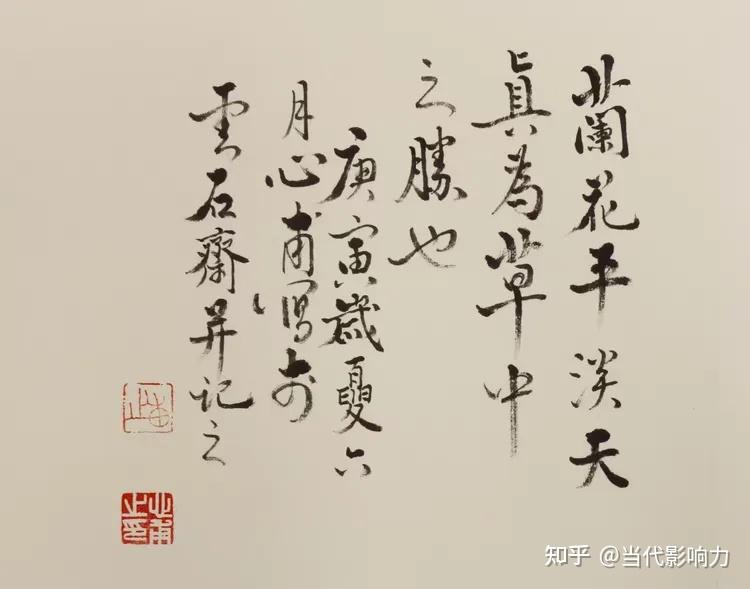 蘭花平淡天
眞為草中
之勝也
庚寅歲夏六
月心甫寫於
雲石齋并記之
知乎 @当代影响力